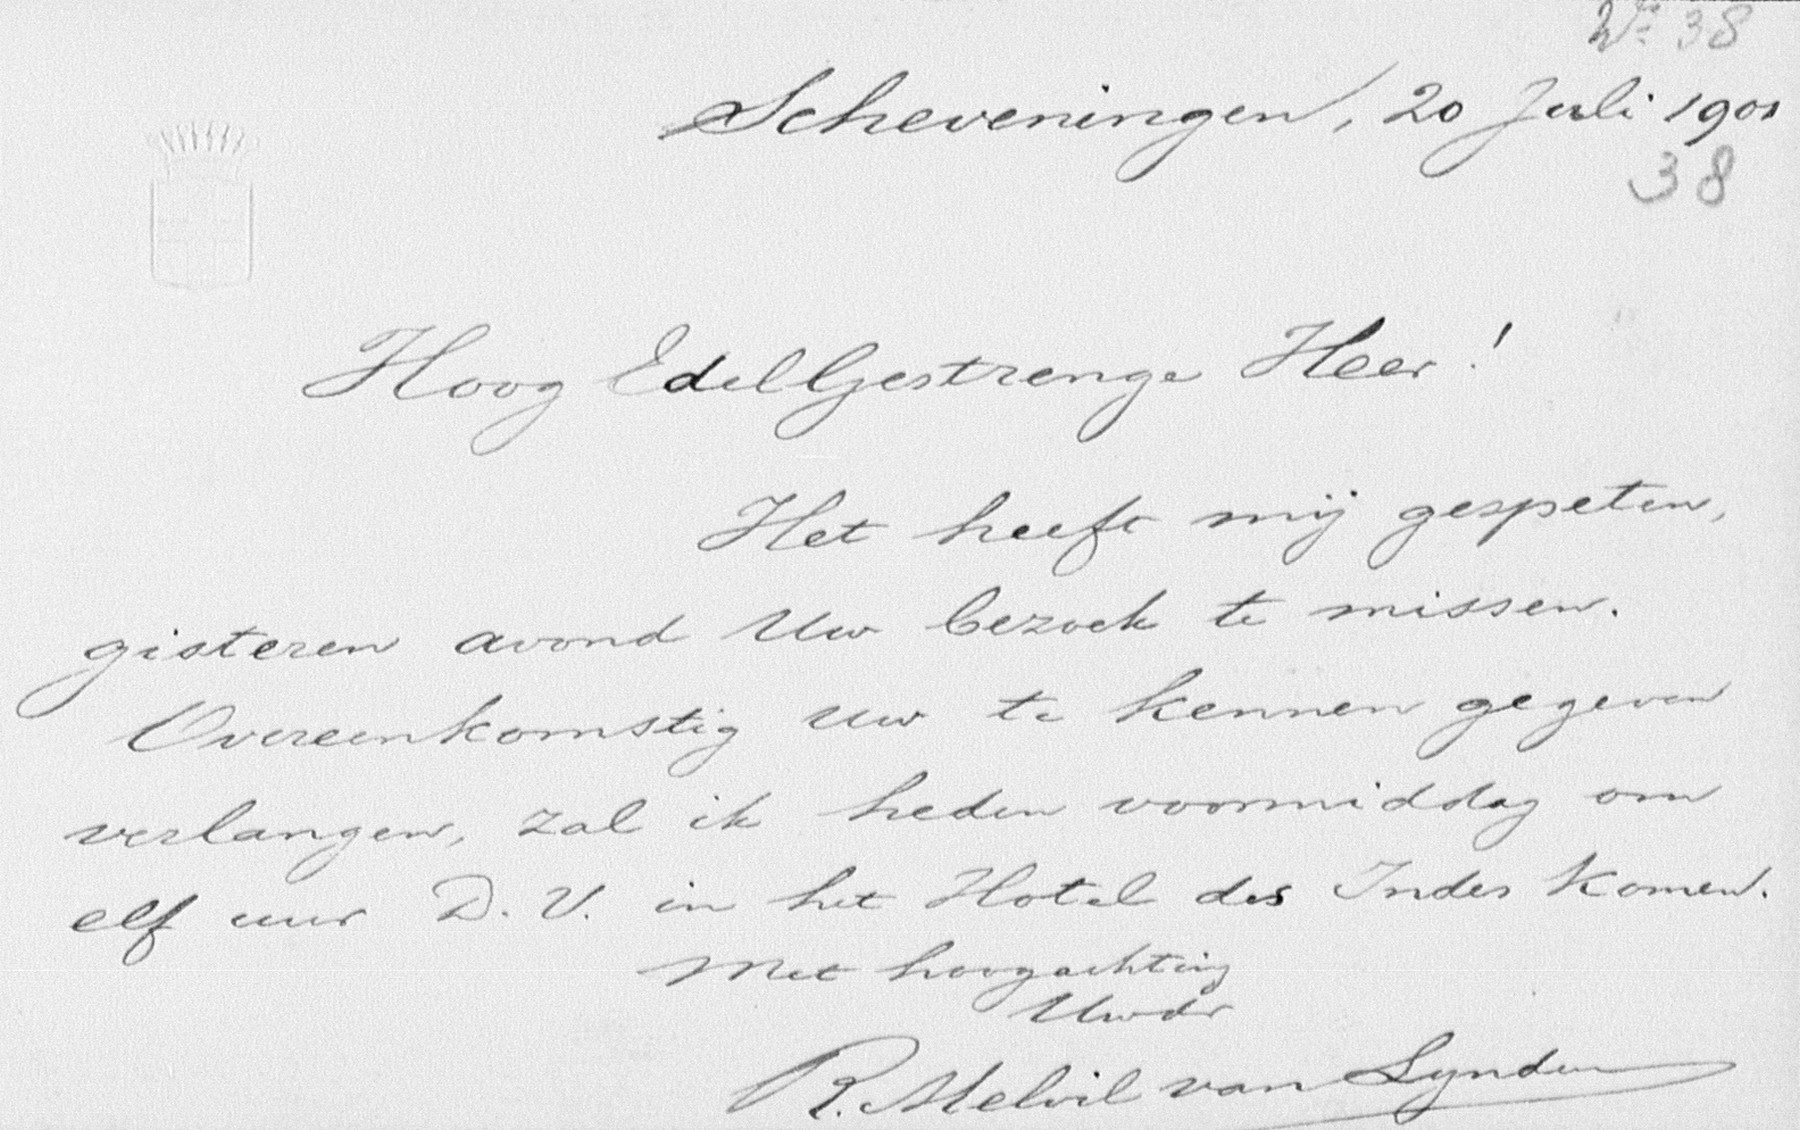 No 38
Scheveningen, 20 Juli 1901
38
Hoog EdelGestrenge Heer!
Het heeft mij gespeten,
gisteren avond Uw bezoek te missen.
Overeenkomstig Uw te kennen gegeven
verlangen, zal ik heden voormiddag om
elf uur D. V. in het Hotel des Indes komen.
Met hoogachting
Uwdr
R. Melvil van Lynden